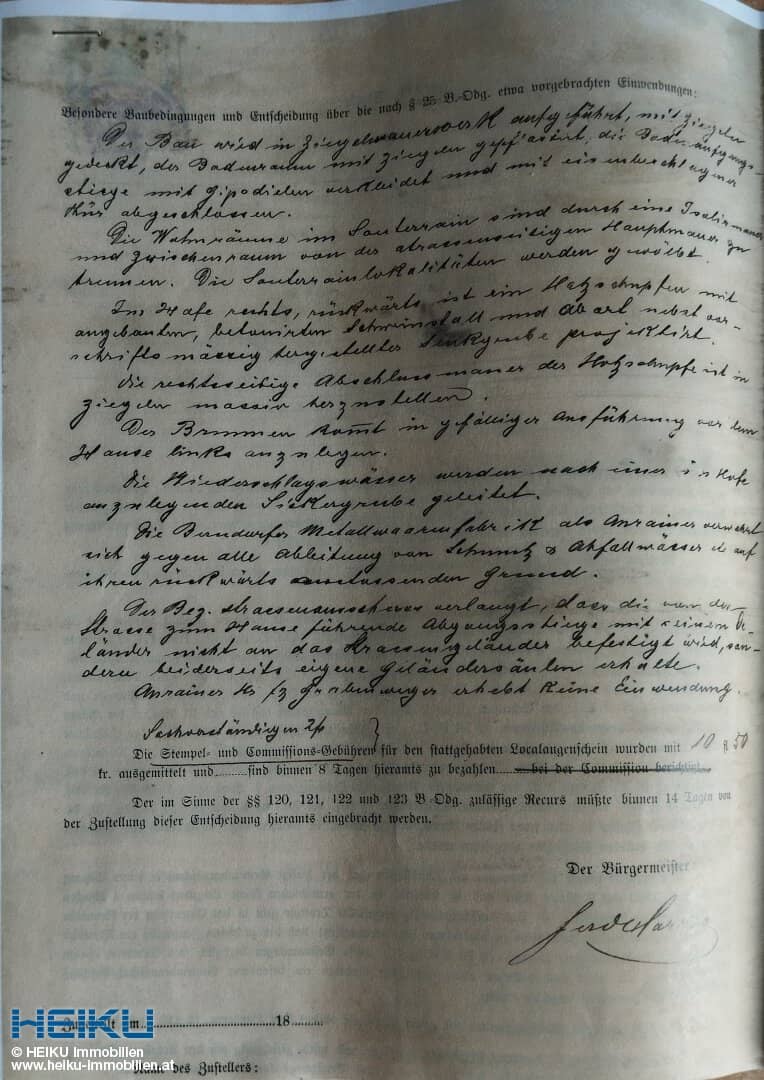 Besondere Baubedingungen und Entscheidung über die nach § 25 B.-Odg. etwa vorgebrachten Einwendungen:
Der Bau wird in Ziegelmauerwerk aufgeführt, mit Ziegeln
gedeckt, der Bodenraum mit Ziegeln gepflastert, die Bodenaufgangs-
stiege mit Gipsdielen verkleidet und mit eisenbeschlagener
Thür abgeschlossen.
Die Wohnräume im Souterrain sind durch eine Isolirmauer
und Zwischenraum von der strassenseitigen Hauptmauer zu
trennen. Die Souterrainlokalitäten werden gewölbt.
Im Hofe rechts, rückwärts ist ein Holzschupfen mit
angebauten, betonirten Schweinstall und Abort nebst vor-
schriftsmässig hergestellter Senkgrube projektirt.
Die rechtsseitige Abschlussmauer der Holzschupfe ist in
Ziegeln massiv herzustellen.
Der Brunnen kommt in gefälliger Ausführung vor dem
Hause links anzulegen.
Die Niederschlagswässer werden nach einer im Hofe
anzulegenden Sickergrube geleitet.
Die Berndorfer Metallwaarenfabrik als Anrainer verwehrt
sich gegen alle Ableitung von Schmutz & Abfallwässer auf
ihren rückwärts anstossenden Grund.
Der Bez. Strassenausschuss verlangt, dass die von der
Strasse zum Hause führende Abgangsstiege mit seinem Ge-
länder nicht an das Strassengeländer befestigt wird, son-
dern beiderseits eigene Geländersäulen erhalte.
Anrainer Hr erhebt keine Einwendung.
Sachverständigen
Die Stempel- und Commissions-Gebühren für den stattgehabten Localaugenschein wurden mit 10 fl 50
kr. ausgemittelt und ......... sind binnen 8 Tagen hieramts zu bezahlen bei der Commission berichtigt.
Der im Sinne der §§ 120, 121, 122 und 123 B.-Odg. zulässige Recurs müßte binnen 14 Tagen von
der Zustellung dieser Entscheidung hieramts eingebracht werden.
Der Bürgermeister
Zugestellt am ........ 18 ........
Name des Zustellers:
HEIKU
© HEIKU Immobilien
www.heiku-immobilien.at